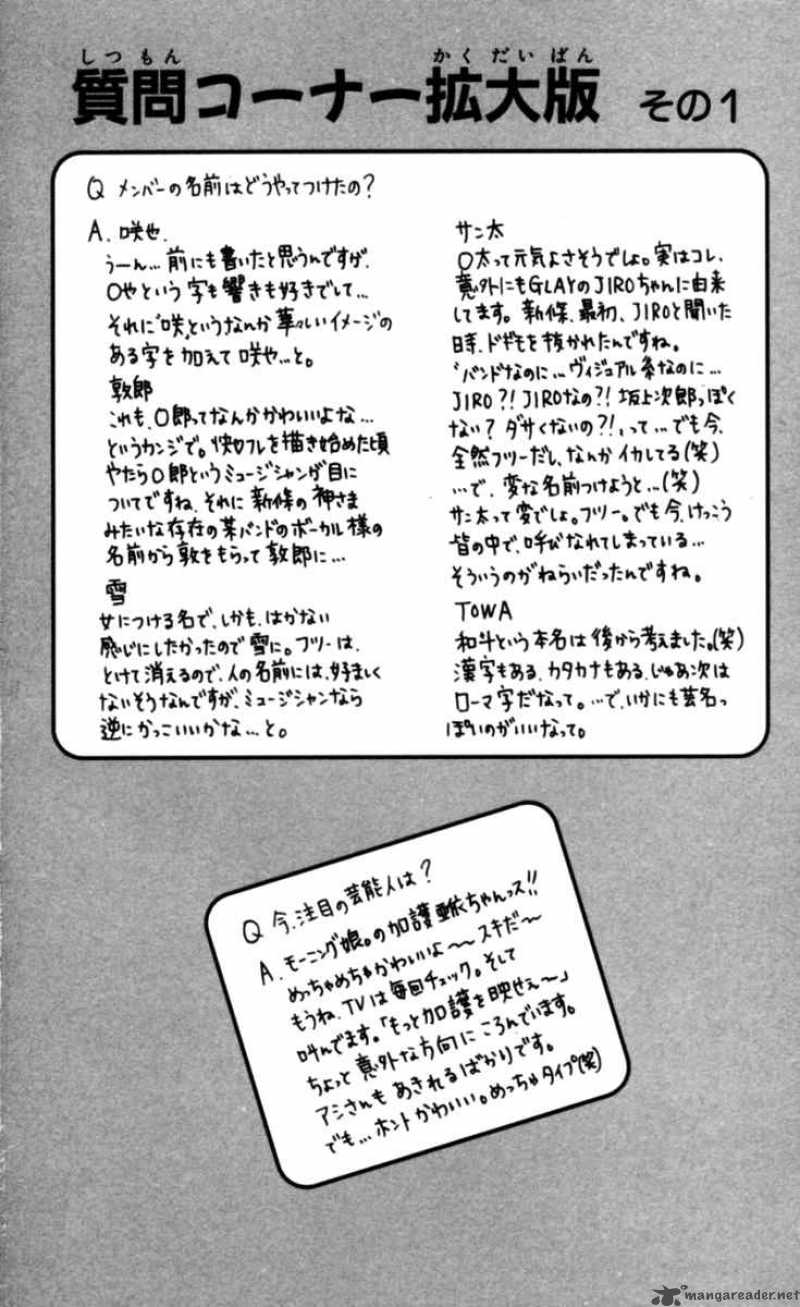 しつもん かくだいばん
質問コーナー拡大版 その1
Q メンバーの名前はどうやってつけたの?
A. 咲也.
うーん…前にも書いたと思うんですが、
○やという字も響きも好きでして…
それに"咲"というなんか華々しいイメージの
ある字を加えて咲や…と。
敦郎
これも、○郎ってなんかかわいいよな…
というカンジで。快フレを描き始めた頃
やたら○郎というミュージシャンが目に
ついてですね、それに新條の神さま
みたいな存在の某バンドのボーカル様の
名前から敦をもらって敦郎に…
雪
女につける名で、しかも、はかない
感じにしたかったので雪に。フツーは、
とけて消えるので、人の名前には、好ましく
ないそうなんですが、ミュージシャンなら
逆にかっこいいかな…と。
サン太
○太って元気よさそうでしょ。実はコレ、
意外にもGLAYのJIROちゃんに由来
してます。新條、最初、JIROと聞いた
時、ドギモを抜かれたんですね。
"バンドなのに…ヴィジュアル系なのに…
JIRO?! JIROなの?! 坂上次郎っぽく
ない? ダサくないの?!"って…でも今、
全然フツーだし、なんかイカしてる(笑)
…で、変な名前つけようと…(笑)
サン太って変でしょ。フツー。でも今、けっこう
皆の中で、呼びなれてしまっている…
そういうのがねらいだったんですね。
TOWA
和斗という本名は後から考えました。(笑)
漢字もある、カタカナもある、じゃあ次は
ローマ字だなって。…で、いかにも芸名っ
ぽいのがいいなって。
Q 今、注目の芸能人は?
A. モーニング娘。の加護亜依ちゃんっス!!
めっちゃめちゃかわいいよ〜〜スキだ〜
もうね、TVは毎回チェック。そして
叫んでます。「もっと加護を映せぇ〜」
ちょっと意外な方向にころんでいます。
アシさんもあきれるばかりです。
でも…ホントかわいい。めっちゃタイプ(笑)
mangareader.net